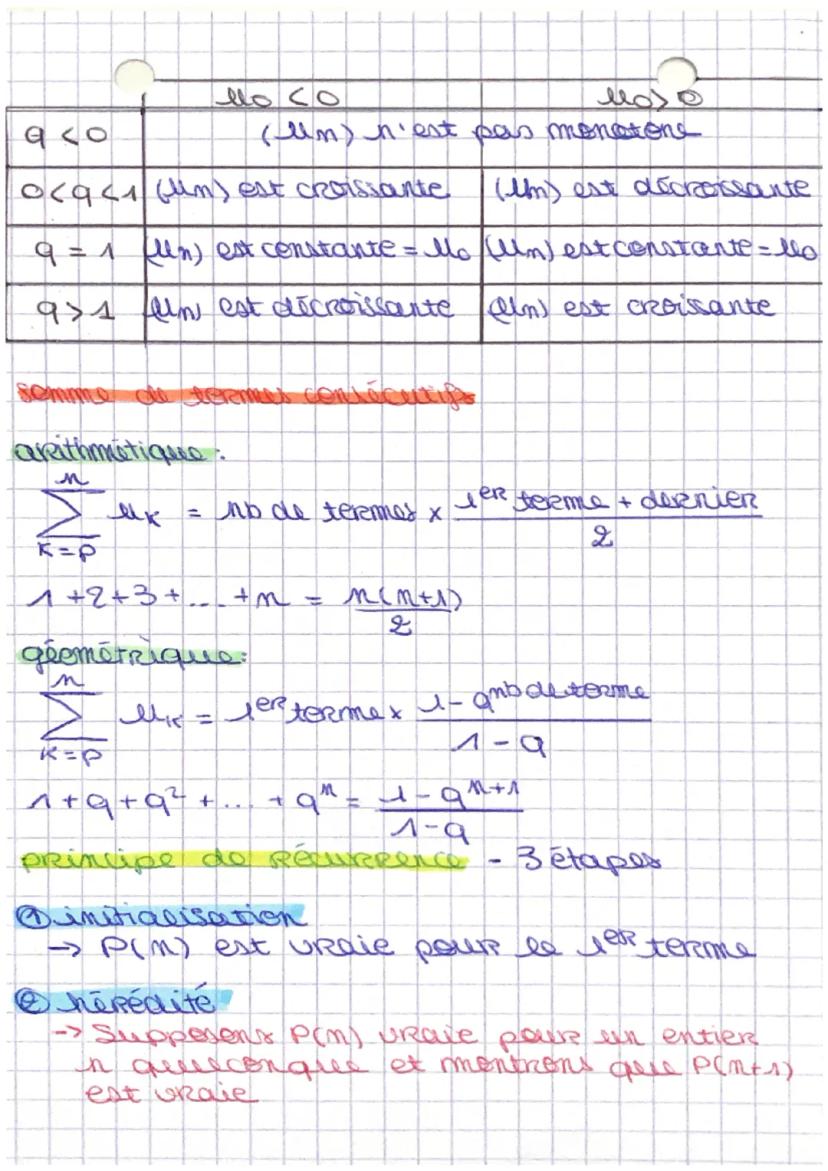 u₀ < 0 u₀ > 0
q < 0 (un) n'est pas monotone
0 < q < 1 (un) est croissante (un) est décroissante
q = 1 (un) est constante = u₀ (un) est constante = u₀
q > 1 (un) est décroissante (un) est croissante
somme de termes consécutifs
arithmétique :
n
∑ uₖ = nb de termes × 1er terme + dernier / 2
k=p
1+2+3+...+n = n(n+1) / 2
géométrique :
n
∑ uₖ = 1er terme × 1 - q^nb de terme / 1 - q
k=p
1+q+q²+...+qⁿ = 1 - qⁿ⁺¹ / 1-q
principe de récurrence - 3 étapes
① initialisation
→ P(n) est vraie pour le 1er terme
② hérédité
→ Supposons P(n) vraie pour un entier
n quelconque et montrons que P(n+1)
est vraie